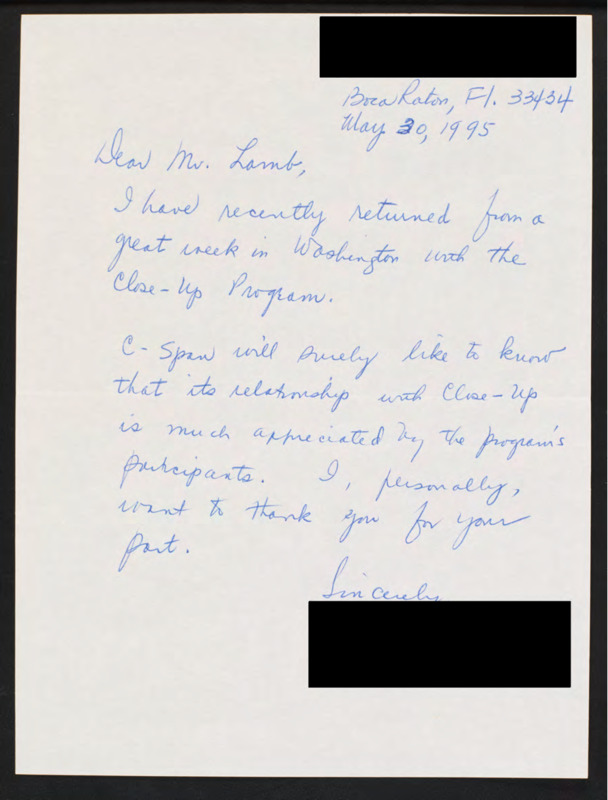 Boca Raton, Fl. 33434
May 30, 1995
Dear Mr. Lamb,
I have recently returned from a
great week in Washington with the
Close-Up Program.
C-Span will surely like to know
that its relationship with Close-Up
is much appreciated by the program's
participants. I, personally,
want to thank you for your
part.
Sincerely